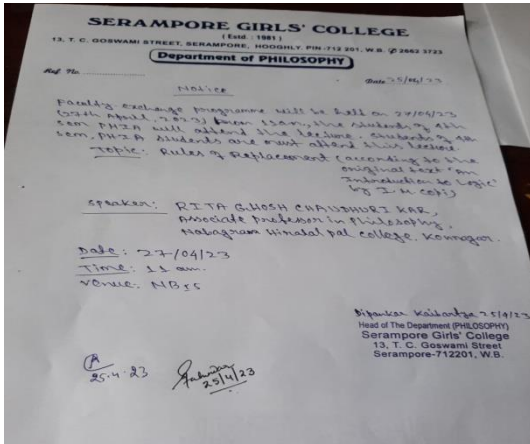 SERAMPORE GIRLS' COLLEGE
( Estd. : 1981 )
13, T. C. GOSWAMI STREET, SERAMPORE, HOOGHLY. PIN-712 201, W.B. ✆ 2662 3723
Department of PHILOSOPHY
Ref. No. ....................
Date 25/04/23
Notice
Faculty exchange programme will be held on 27/04/23
(27th April, 2023) from 11am, the students of 4th
sem PHIA will attend the lecture. Students of 4th
sem, PHIA students are must attend this lecture.
Topic: Rules of Replacement (according to the
original text 'An
Introduction to Logic'
by I. M Copi)
Speaker: RITA GHOSH CHAUDHURI KAR,
Associate professor in Philosophy,
Nabagram Hiralal Pal College, Konnagar.
Date: 27/04/23
Time: 11 am.
Venue: NB
Dipankar Kaibartya 25/4/23
Head of The Department (PHILOSOPHY)
Serampore Girls' College
13, T. C. Goswami Street
Serampore-712201, W.B.
25.4.23
25/4/23